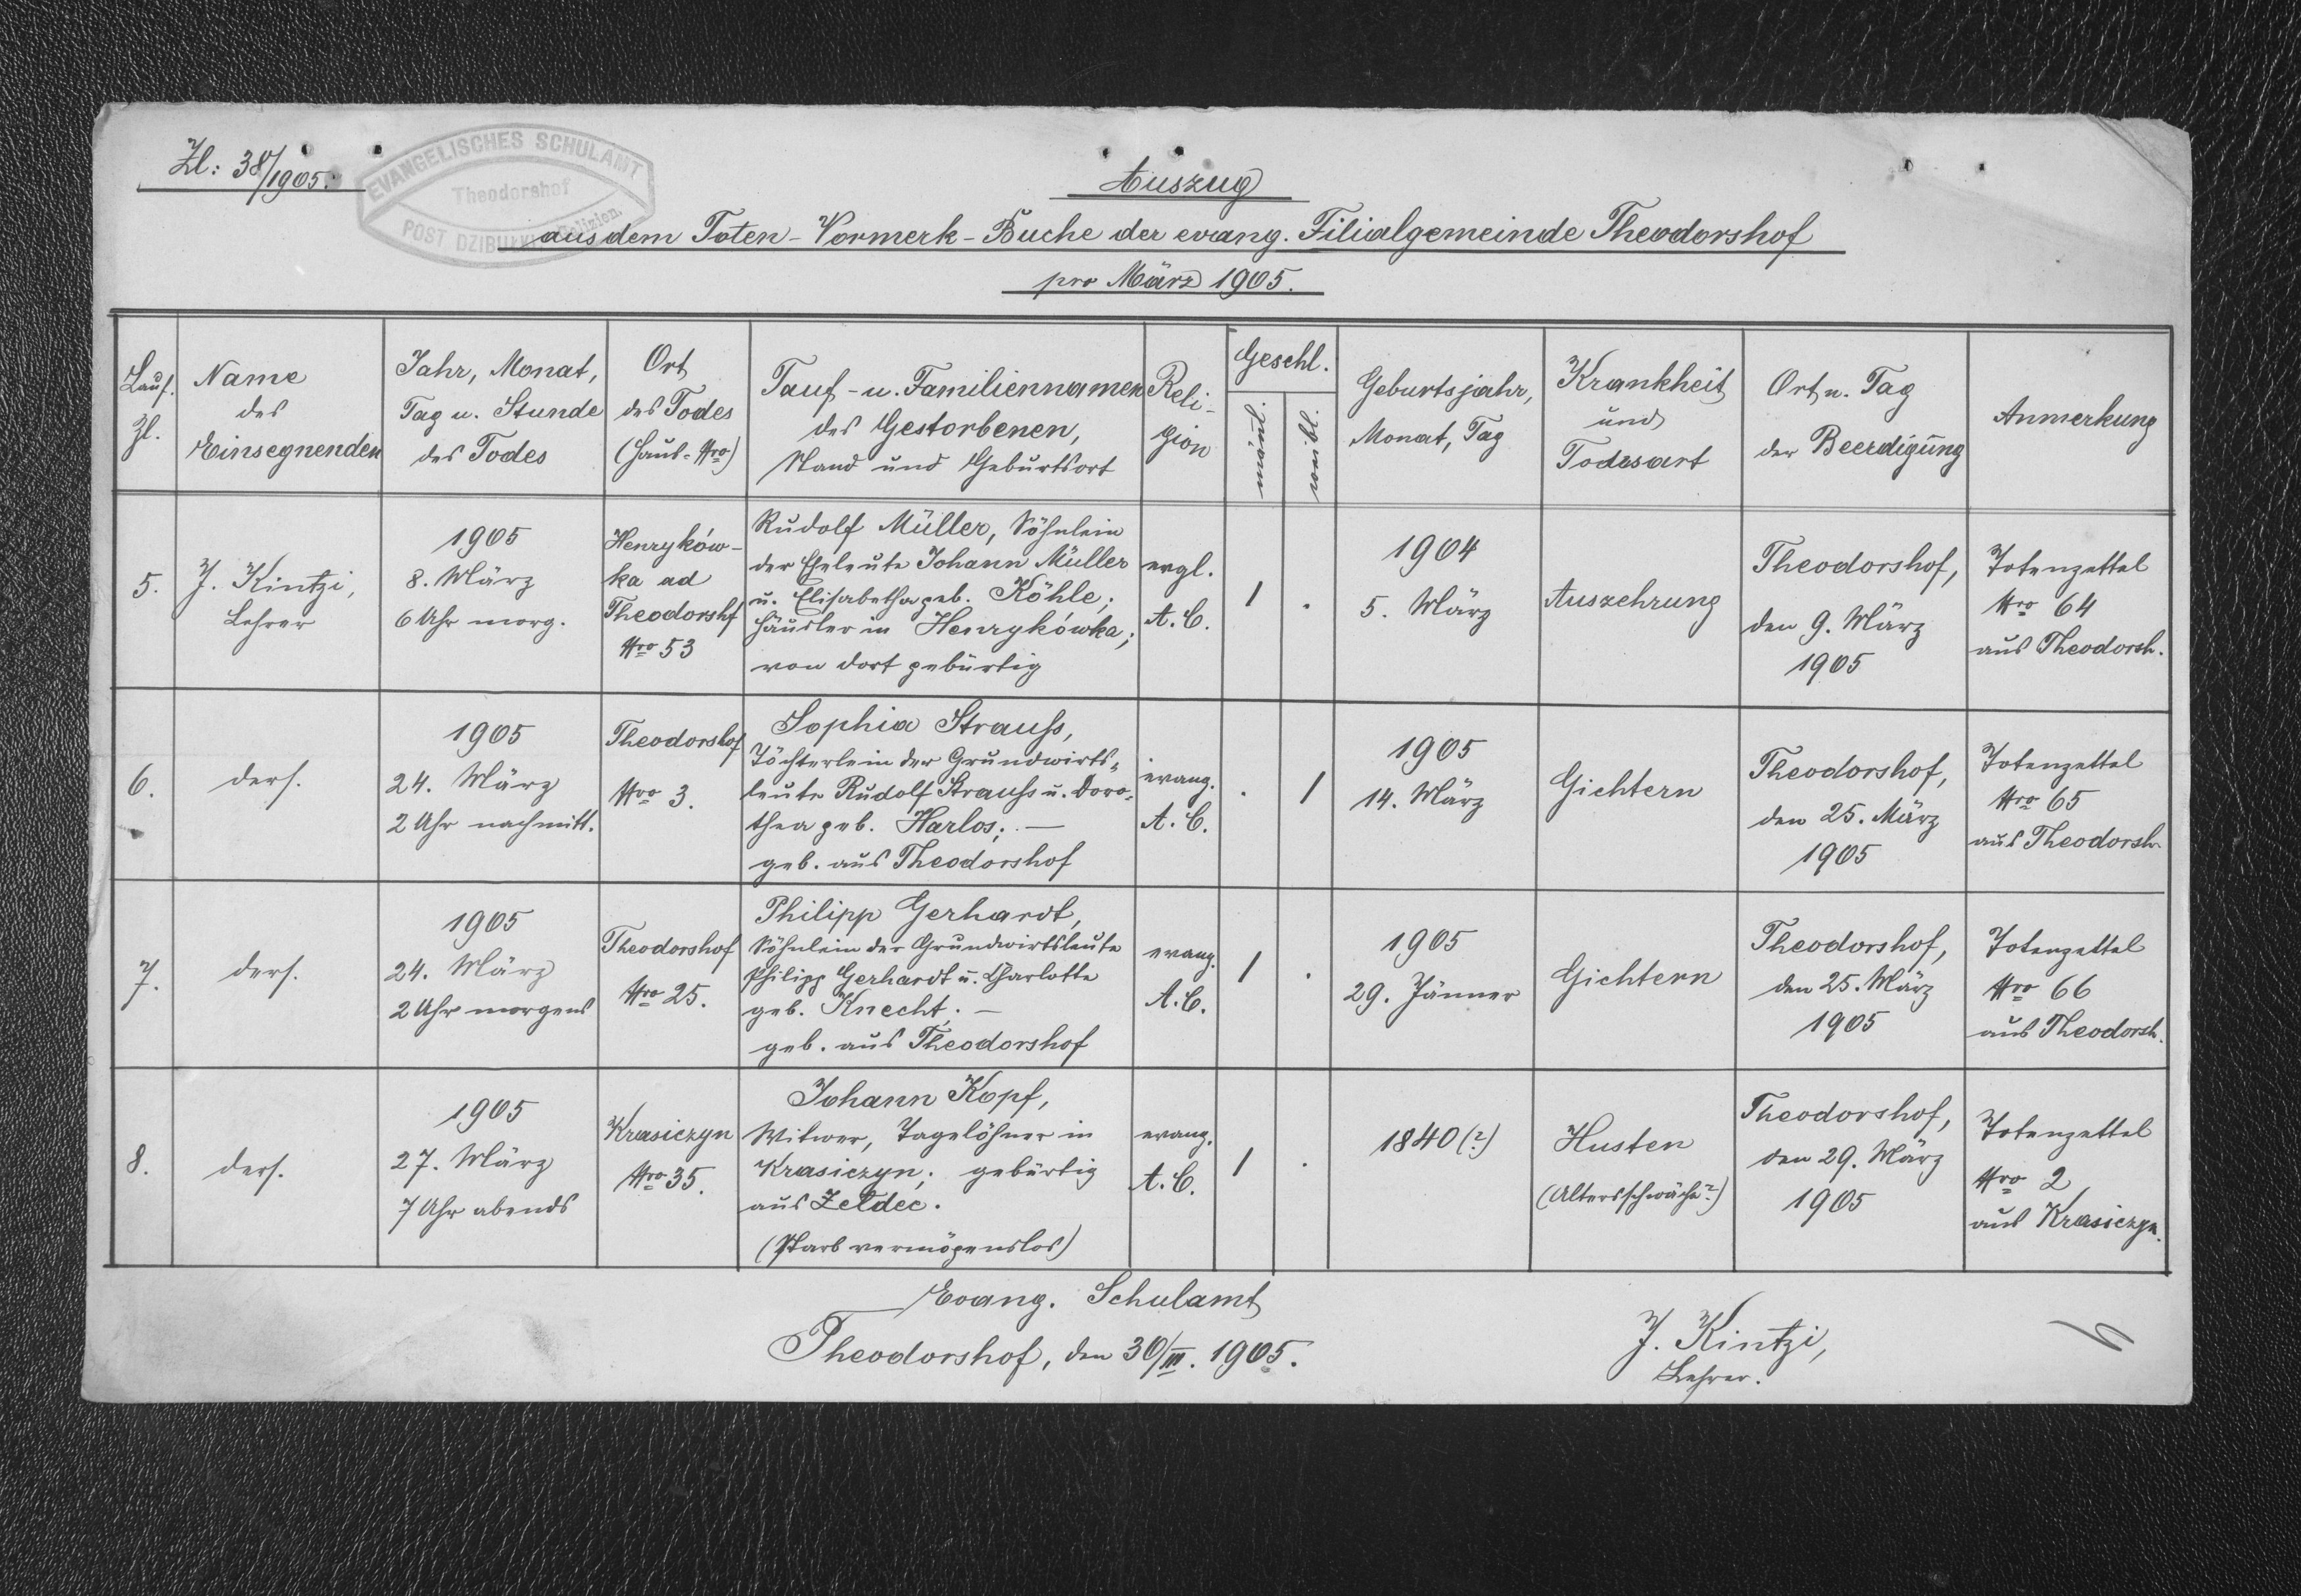 Zl: 38/1905.
EVANGELISCHES SCHULAMT
Theodorshof
POST DZIBUŁKI, Galizien.
Auszug
aus dem Toten-Vormerk-Buche der evang. Filialgemeinde Theodorshof
pro März 1905.
Lauf. Zl.
Name
des
Einsegnenden
Jahr, Monat,
Tag u. Stunde
des Todes
Ort
des Todes
(Haus-Nro)
Tauf- u. Familiennamen
des Gestorbenen,
Stand und Geburtsort
Reli-
gion
Geschl.
männl.
weibl.
Geburtsjahr,
Monat, Tag
Krankheit
und
Todesart
Ort u. Tag
der Beerdigung
Anmerkung
5.
J. Kintzi,
Lehrer
1905
8. März
6 Uhr morg.
Henryków-
ka ad
Theodorshf
Nro 53
Rudolf Müller, Söhnlein
der Eheleute Johann Müller
u. Elisabetha geb. Köhle;
Häusler in Henrykówka;
von dort gebürtig
evgl.
A. C.
1
.
1904
5. März
Auszehrung
Theodorshof,
den 9. März
1905
Totenzettel
Nro 64
aus Theodorsh.
6.
ders.
1905
24. März
2 Uhr nachmitt.
Theodorshof
Nro 3.
Sophia Strauss,
Töchterlein der Grundwirts-
leute Rudolf Strauss u. Doro-
thea geb. Harlos; —
geb. aus Theodorshof
evang.
A. C.
.
1
1905
14. März
Gichtern
Theodorshof,
den 25. März
1905
Totenzettel
Nro 65
aus Theodorsh.
7.
ders.
1905
24. März
2 Uhr morgens
Theodorshof
Nro 25.
Philipp Gerhardt,
Söhnlein der Grundwirtsleute
Philipp Gerhardt u. Charlotte
geb. Knecht; —
geb. aus Theodorshof
evang.
A. C.
1
.
1905
29. Jänner
Gichtern
Theodorshof,
den 25. März
1905
Totenzettel
Nro 66
aus Theodorsh.
8.
ders.
1905
27. März
7 Uhr abends
Krasiczyn
Nro 35.
Johann Kopf,
Witwer, Tagelöhner in
Krasiczyn; gebürtig
aus Zeldec.
(Starb vermögenslos)
evang.
A. C.
1
.
1840 (?)
Husten
(Altersschwäche?)
Theodorshof,
den 29. März
1905
Totenzettel
Nro 2
aus Krasiczyn.
Evang. Schulamt
Theodorshof, den 30/III. 1905.
J. Kintzi,
Lehrer.